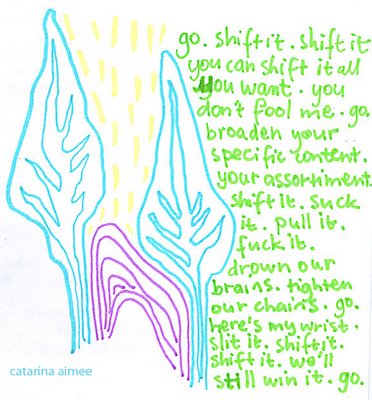 go. shift it. shift it
you can shift it all
you want. you
don't fool me. go.
broaden your
specific content.
your assortment.
shift it. suck
it. pull it.
fuck it.
drown our
brains. tighten
our chains. go.
here's my wrist.
slit it. shift it.
shift it. we'll
still win it. go.
catarina aimee